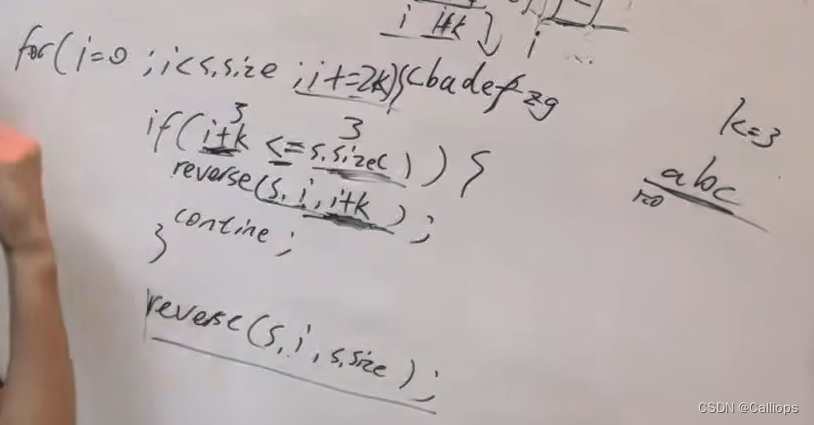 i i+k i
for(i=0 ; i<s.size ; i+=2k){ cbadefzg
k=3
3 3
if(i+k <= s.size( ) ) {
abc
i=0
reverse(s, i, i+k ) ;
contine ;
}
reverse(s, i, s.size ) ;
CSDN @Calliops